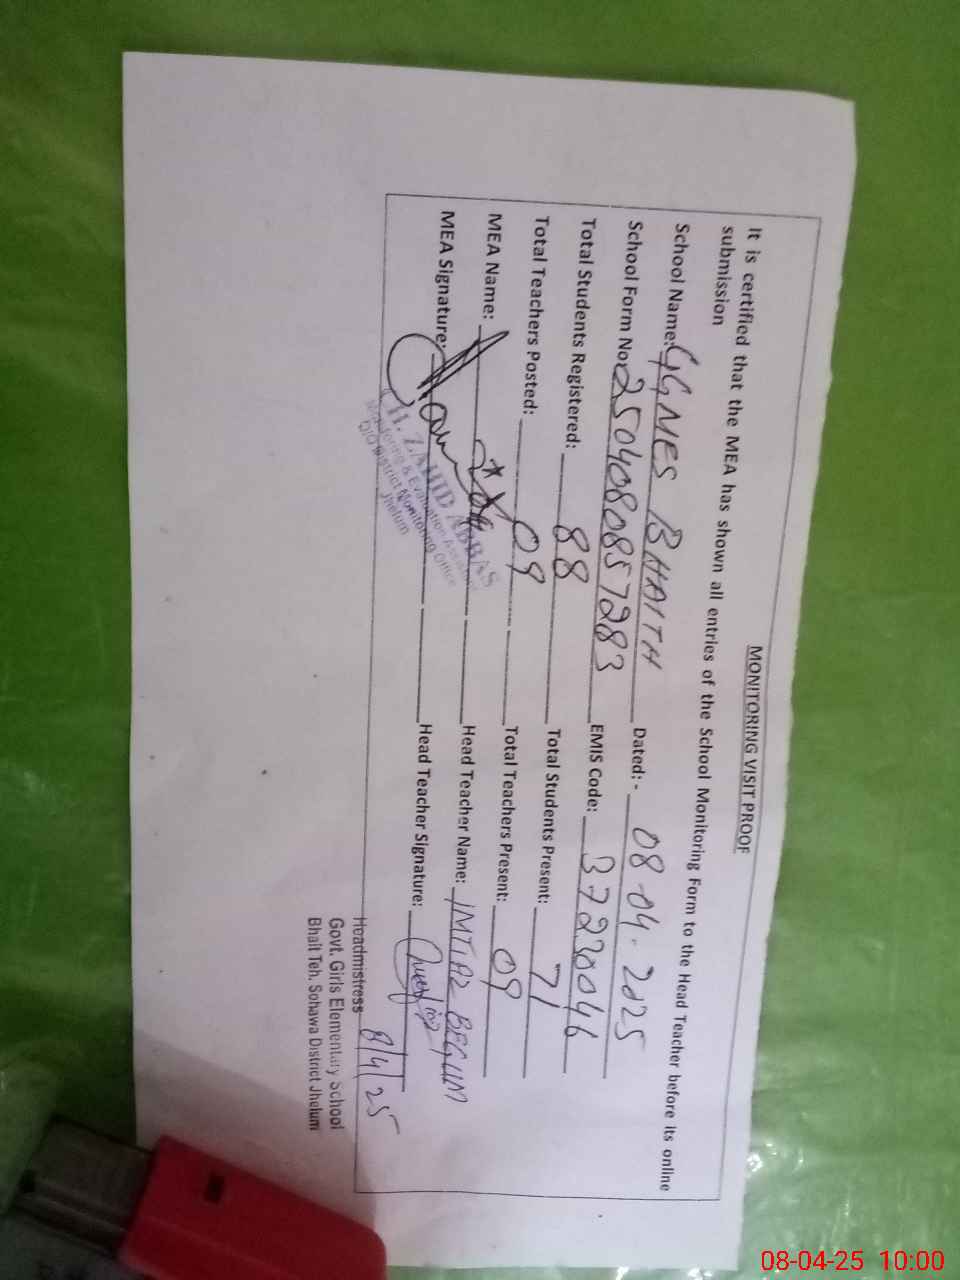 MONITORING VISIT PROOF
It is certified that the MEA has shown all entries of the School Monitoring Form to the Head Teacher before its online
submission
School Name: GGMES BHAITH Dated:- 08-04-2025
School Form No: 2504080857283 EMIS Code: 37220046
Total Students Registered: 88 Total Students Present: 71
Total Teachers Posted: 09 Total Teachers Present: 09
MEA Name: Head Teacher Name: IMTIAZ BEGUM
MEA Signature: Head Teacher Signature:
CH. ZAHID ABBAS
Monitoring & Evaluation Assistant
O/O District Monitoring Office
Jhelum
8/4/25
Headmistress
Govt. Girls Elementary School
Bhait Teh. Sohawa District Jhelum
08-04-25 10:00